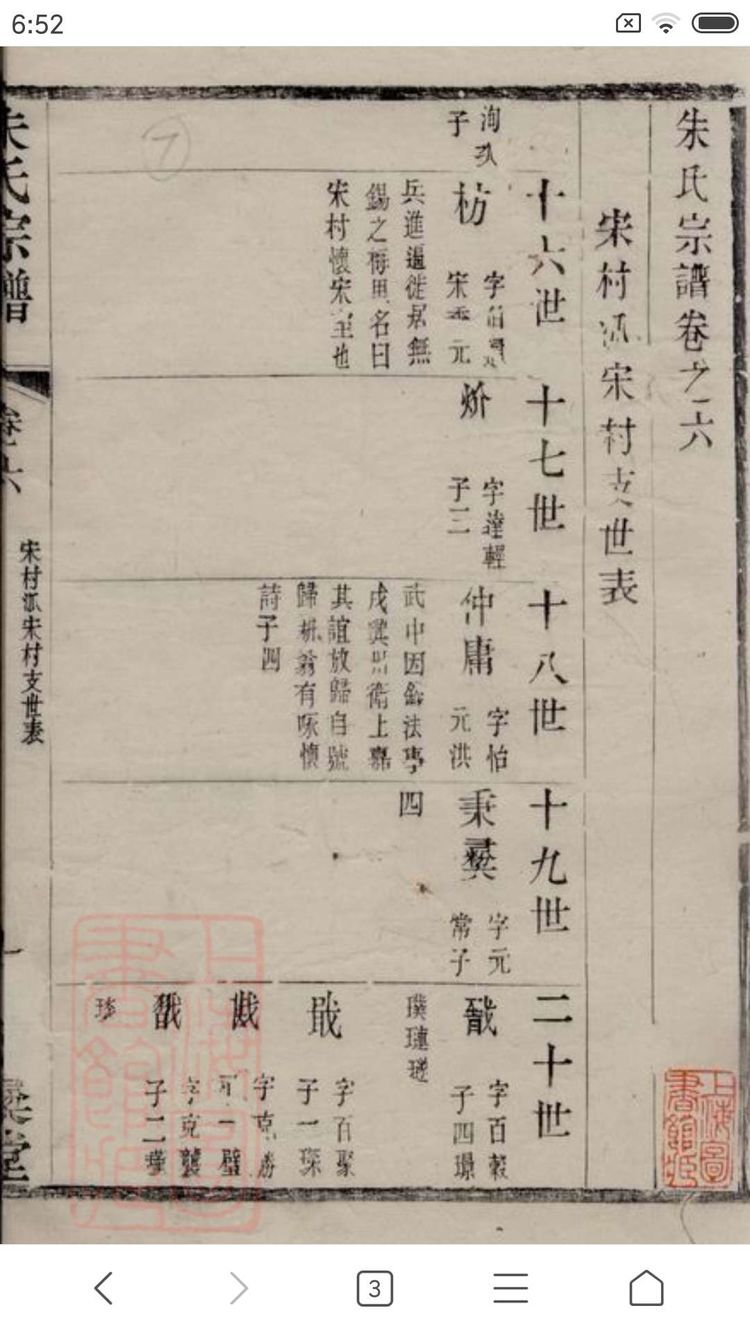 6:52
朱氏宗譜卷之六
宋村派宋村支世表
十六世
十七世
十八世
十九世
二十世
洵
子
枋
字伯
宋 元
兵進逼徙居無
錫之梅里名曰
宋村懷宋室也
炌
字達輕
子三
仲庸
字怡
元洪
武中因 法學
戌冀州衛上嘉
其誼放歸自號
歸耕翁有咏懷
詩子四
秉彝
字元
常子
四
字百穀
子四璟
璞璉璲
戢
字百聚
子一琛
字克勝
子一璧
字克襲
子二
朱氏宗譜
卷六
宋村派宋村支世表
一
堂
上海圖書館藏
3